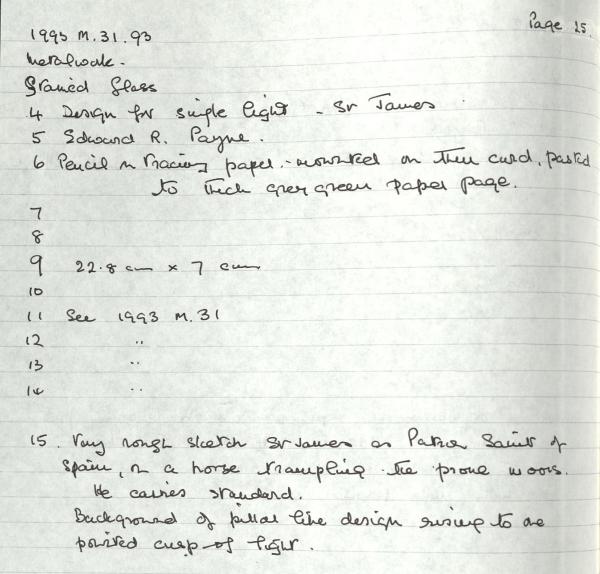 Page 25.
1993 M.31.93
Metalwork.
Stained Glass
4 Design for single light - St James
5 Edward R. Payne.
6 Pencil on tracing paper. - mounted on thin card, pasted
to thick grey green paper page.
7
8
9 22.8 cm x 7 cm
10
11 See 1993 M.31
12 "
13 "
14 "
15. Very rough sketch St James as Patron Saint of
Spain, on a horse trampling the prone moors.
He carries standard.
Background of pillar like design rising to the
pointed cusp of light.